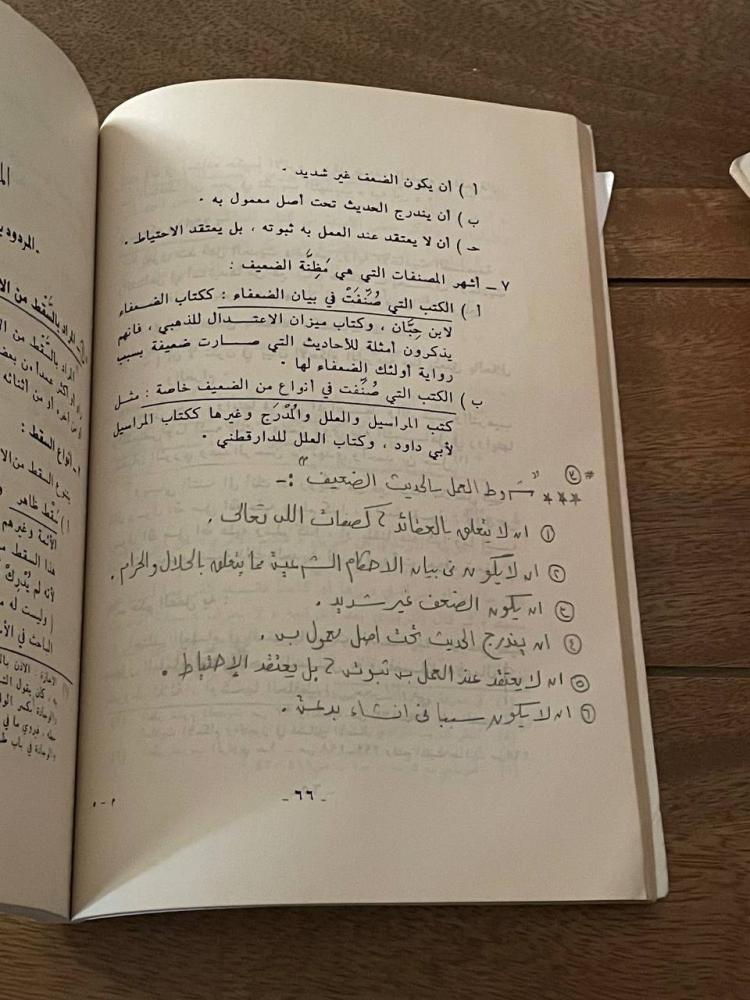 أ ) أن يكون الضعف غير شديد .
ب ) أن يندرج الحديث تحت أصل معمول به .
حـ ) أن لا يعتقد عند العمل به ثبوته ، بل يعتقد الاحتياط .
٧ ـ أشهر المصنفات التي هي مَظِنَّة الضعيف :
أ ) الكتب التي صُنِّفَتْ في بيان الضعفاء : ككتاب الضعفاء
لابن حِبَّان ، وكتاب ميزان الاعتدال للذهبي ، فانهم
يذكرون أمثلة للأحاديث التي صارت ضعيفة بسبب
رواية أولئك الضعفاء لها .
ب ) الكتب التي صُنِّفت في أنواع من الضعيف خاصة : مثل
كتب المراسيل والعلل والمُدْرَج وغيرها ككتاب المراسيل
لأبي داود ، وكتاب العلل للدارقطني .
# ②
*** " شروط العمل بالحديث الضعيف " :-
① ان لا يتعلق بالعقائد ، كصفات الله تعالى .
② ان لا يكون في بيان الاحكام الشرعية مما يتعلق بالحلال والحرام .
③ ان يكون الضعف غير شديد .
④ ان يندرج الحديث تحت اصل معمول به .
⑤ ان لا يعتقد عند العمل به ثبوته ، بل يعتقد الإحتياط .
⑥ ان لا يكون سببا في انشاء بدعة .
- ٦٦ -
م - ٥
المراد بالسَّقْط من الإ
المراد بالسَّقْط من الا
٢ ـ أنواع السقط :
يتنوع السقط من الا
أ ) سَقْط ظاهر
الأئمة وغيرهم
هذا السقط م
لأنه لم يُدْرِكْ
( وليست له
الباحث في الأ